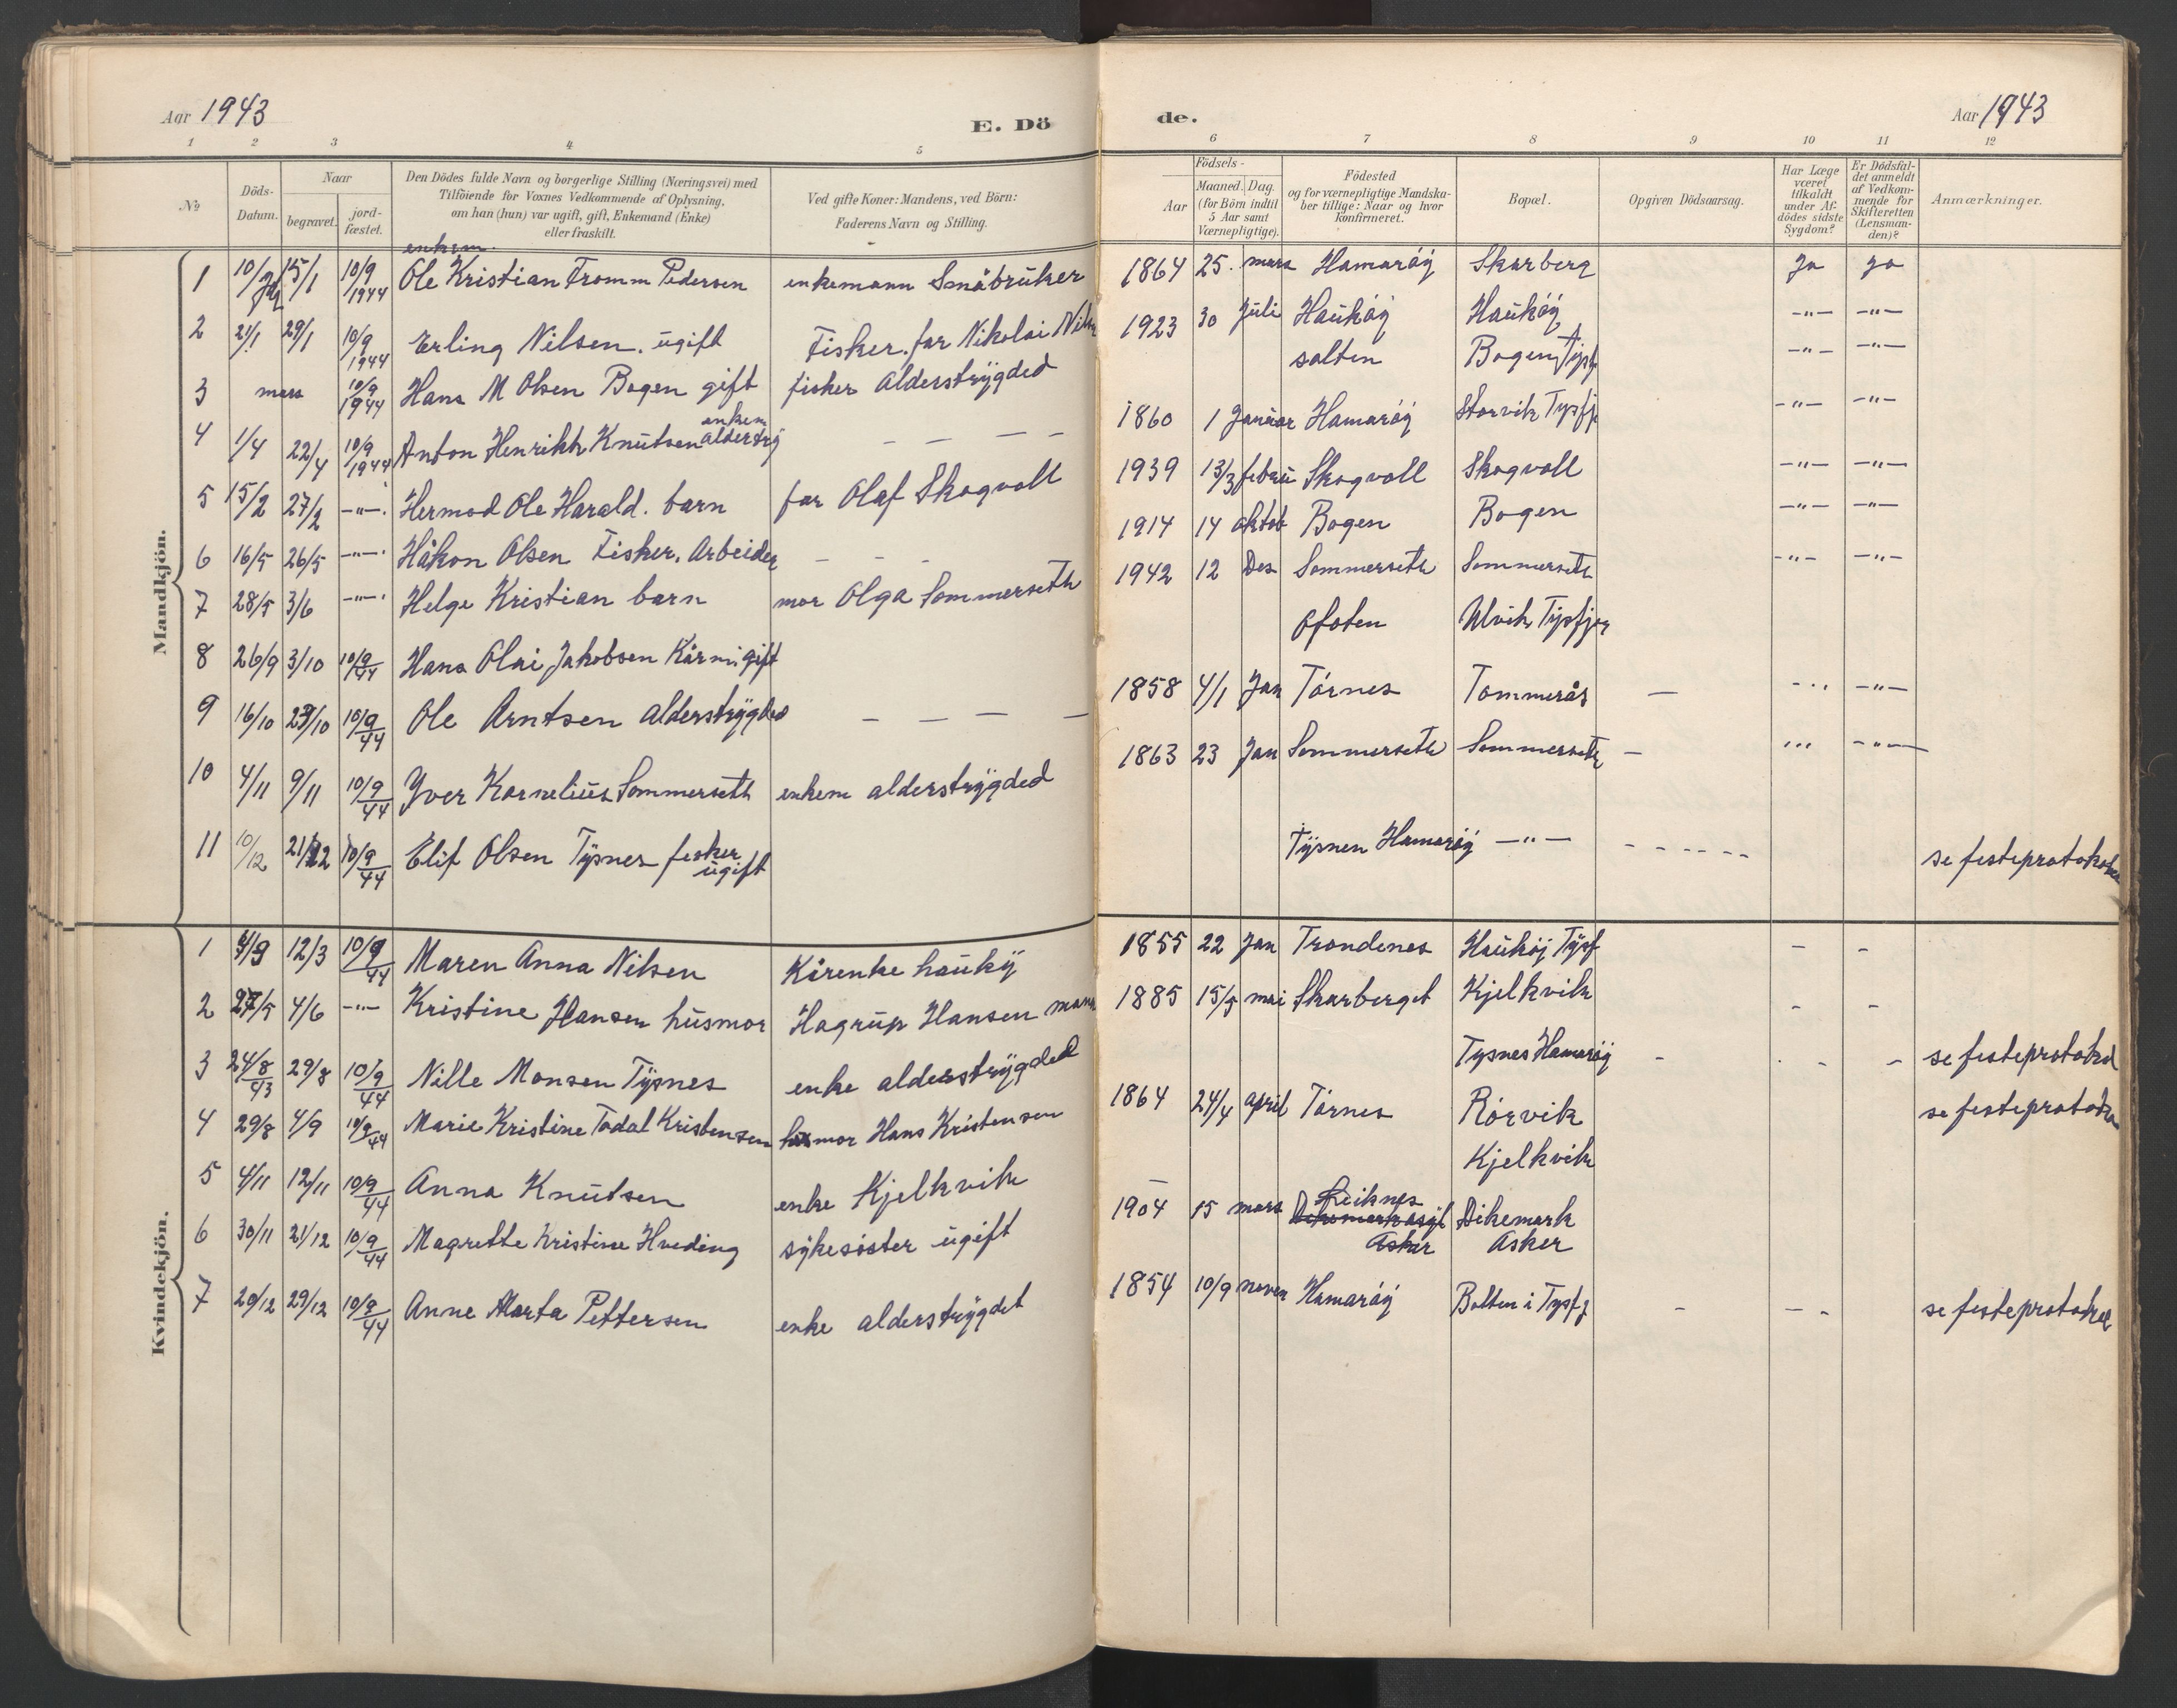 Aar 1943
E. Dö
de.
Aar 1943
1 2 3 4 5 6 7 8 9 10 11 12
No
Döds-Datum.
Naar
begravet.
jord-fæstet.
Den Dödes fulde Navn og borgerlige Stilling (Næringsvei) med
Tilföiende for Voxnes Vedkommende af Oplysning,
om han (hun) var ugift, gift, Enkemand (Enke)
eller fraskilt.
Ved gifte Koner: Mandens, ved Börn:
Faderens Navn og Stilling.
Födsels-
Aar
Maaned. Dag.
(for Börn indtil
5 Aar samt
Værnepligtige).
Födested
og for værnepligtige Mandska-
ber tillige: Naar og hvor
konfirmeret.
Bopæl.
Opgiven Dödsaarsag.
Har Læge
været
tilkaldt
under Af-
dödes sidste
Sygdom?
Er Dödsfal-
det anmeldt
af Vedkom-
mende for
Skifteretten
(Lensman-
den)?
Anmærkninger.
Mandkjön.
enkem.
1 10/ 15/1 10/9 1944 Ole Kristian Fromm Pedersen enkemann Småbruker 1864 25. mars Hamaröy Skarberg Ja Ja
2 21/1 29/1 10/9 1944 Erling Nilsen. ugift Fisker. far Nikolai 1923 30 Juli Hauköy Hauköy -"- -"-
3 mars 10/9 1944 Hans M Olsen Bogen gift fisker Alderstrygded salten Bogen Tysf -"- -"-
enkem
4 1/4 22/4 10/9 1944 Anton Henrikk Knutsen alderstry - - - - 1860 1 Januar Hamaröy Storvik Tysfj -"- -"-
5 15/2 27/2 -"-. Hermod Ole Harald. barn far Olaf Skogvoll 1939 13/3 febru Skogvoll Skogvoll -"- -"-
6 16/5 26/5 -"-. Håkon Olsen Fisker. Arbeider - - 1914 14 oktob Bogen Bogen -"- -"-
7 28/5 3/6 -"-. Helge Kristian barn mor Olga Sommerseth 1942 12 Des Sommerseth Sommerseth -"- -"-
8 26/9 3/10 10/9 44 Hans Olai Jakobsen Kårm. gift Ofoten Ulvik Tysfjor
9 16/10 /10 10/9 44 Ole Arntsen alderstrygded - - - - 1858 4/1 Jan Törnes Tommerås - -"-
10 4/11 9/11 10/9 44 Yver Kornelius Sommerseth enkem alderstrygded 1863 23 Jan Sommerseth Sommerseth - -"-
11 10/12 21/12 10/9 44 Elif Olsen Tysnes fisker ugift Tysnen Hamaröy -"- - - - - - - se festeprotokolen
Kvindekjön.
1 12/3 10/9 44 Maren Anna Nilsen Kårenke hauköy 1855 22 Jan Trondenes Hauköj Tysf - -
2 27/5 4/6 -"- Kristine Hansen husmor Hagrup Hansen mann 1885 15/5 mai Skarberget Kjelkvik - -
3 24/8 43 29/8 10/9 44 Nille Monsen Tysnes enke alderstrygded Tysnes Hamaröy - - - se festeprotokol
4 29/8 4/9 10/9 44 Marie Kristine Todal Kristensen husmor Hans Kristensen 1864 24/4 april Törnes Rörvik se festeprotokol
5 4/11 12/11 10/9 44 Anna Knutsen enke Kjelkvik Kjelkvik
6 30/11 21/12 10/9 44 Magrethe Kristine Hveding sykesöster ugift 1904 15 mars Leiknes Asker Dikemark Asker
7 20/12 29/12 10/9 44 Anne Marta Pettersen enke alderstrygdet 1854 10/9 noven Hamaröy Bolten i Tysfj - - - se festeprotokol